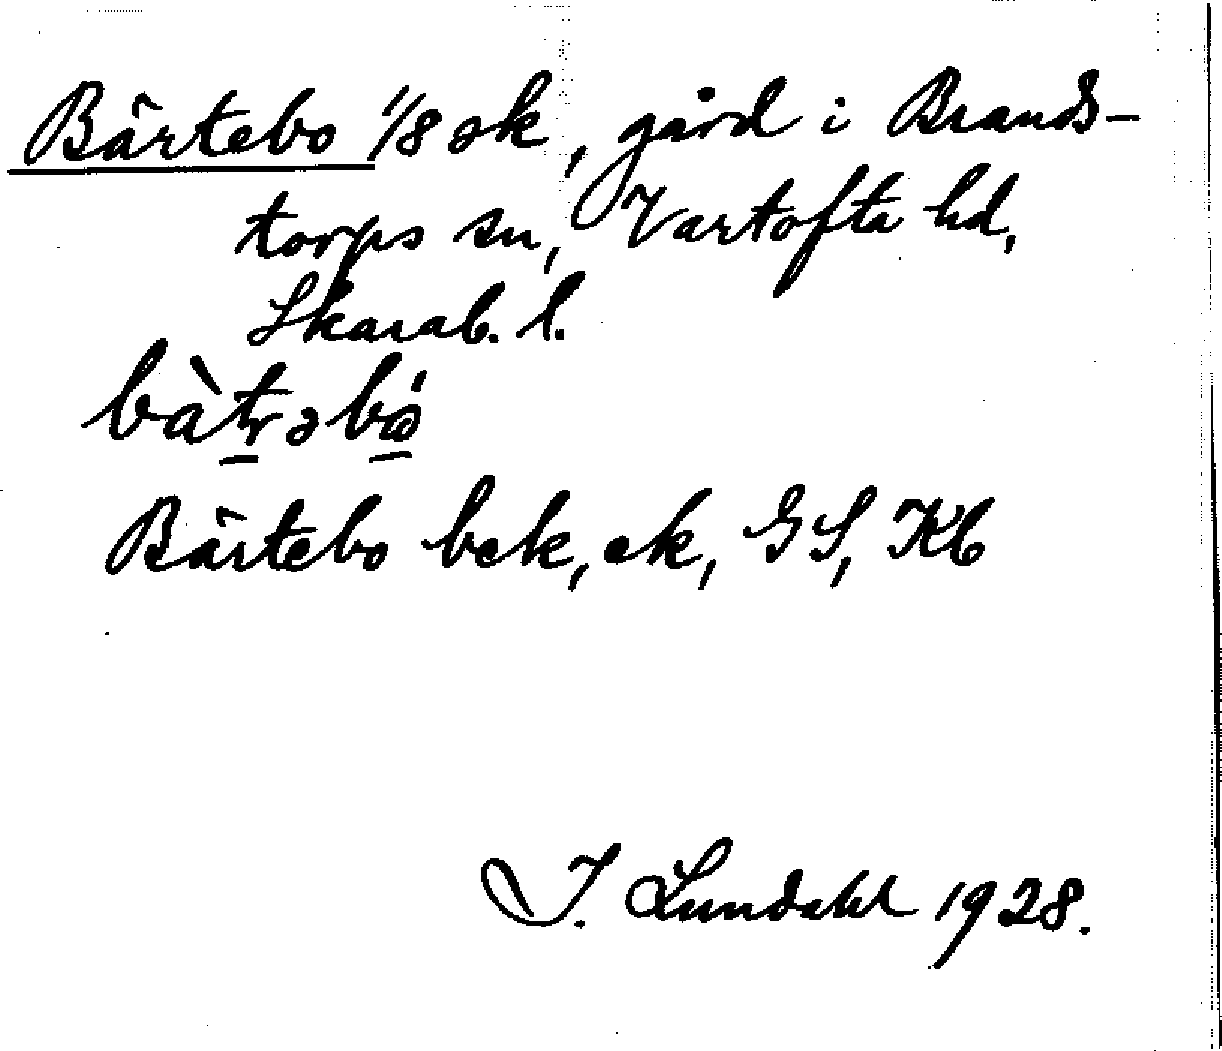 Bärtebo 1/8 sk, gård i Brands-
torps sn, Vartofta hd,
Skarab. l.
bàtrəbǿ
Bärtebo bek, ek, GS, Kb
I. Lundahl 1928.